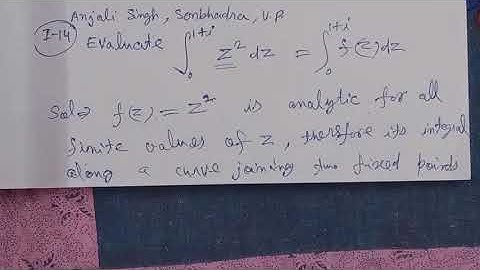 Anjali Singh, Sonbhadra, U.P.
I-14 Evaluate ∫₀^{1+i} z² dz = ∫₀^{1+i} f(z) dz
Sol ⇒ f(z) = z² is analytic for all
finite values of z, therefore its integral
along a curve joining two fixed points